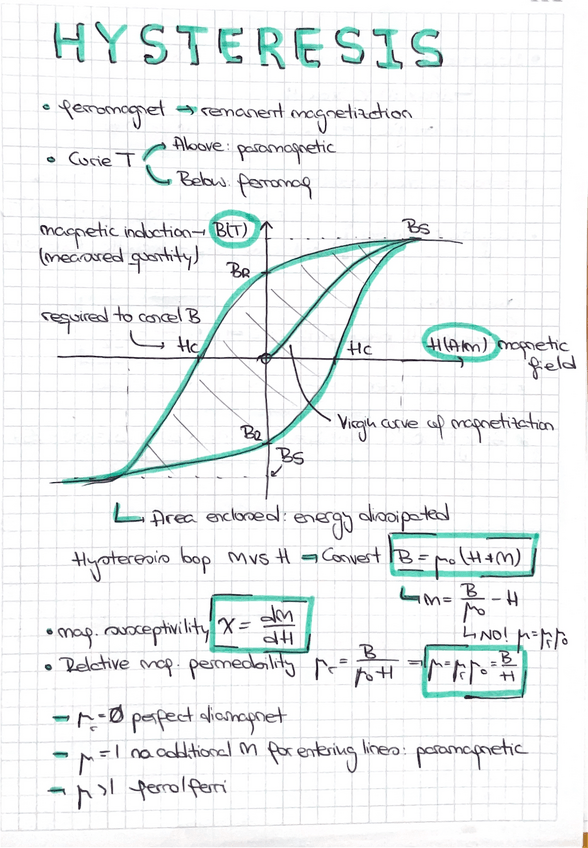 HYSTERESIS
• ferromagnet → remanent magnetization
• Curie T
Above: paramagnetic
Below: ferromag
magnetic induction → B(T)
(measured quantity)
BS
BR
required to cancel B
HC
HC
H(A/m) magnetic
field
Virgin curve of magnetization
BR
BS
Area enclosed: energy dissipated
Hysteresis loop M vs H → Convert B = μ₀(H+M)
M = B/μ₀ - H
NO! μ = μᵣμ₀
• mag. susceptivility χ = dM/dH
• Relative mag. permeability μᵣ = B/μ₀H → μ = μᵣμ₀ = B/H
- μᵣ = 0 perfect diamagnet
- μ = 1 no additional M for entering lines: paramagnetic
- μ > 1 ferro/ferri